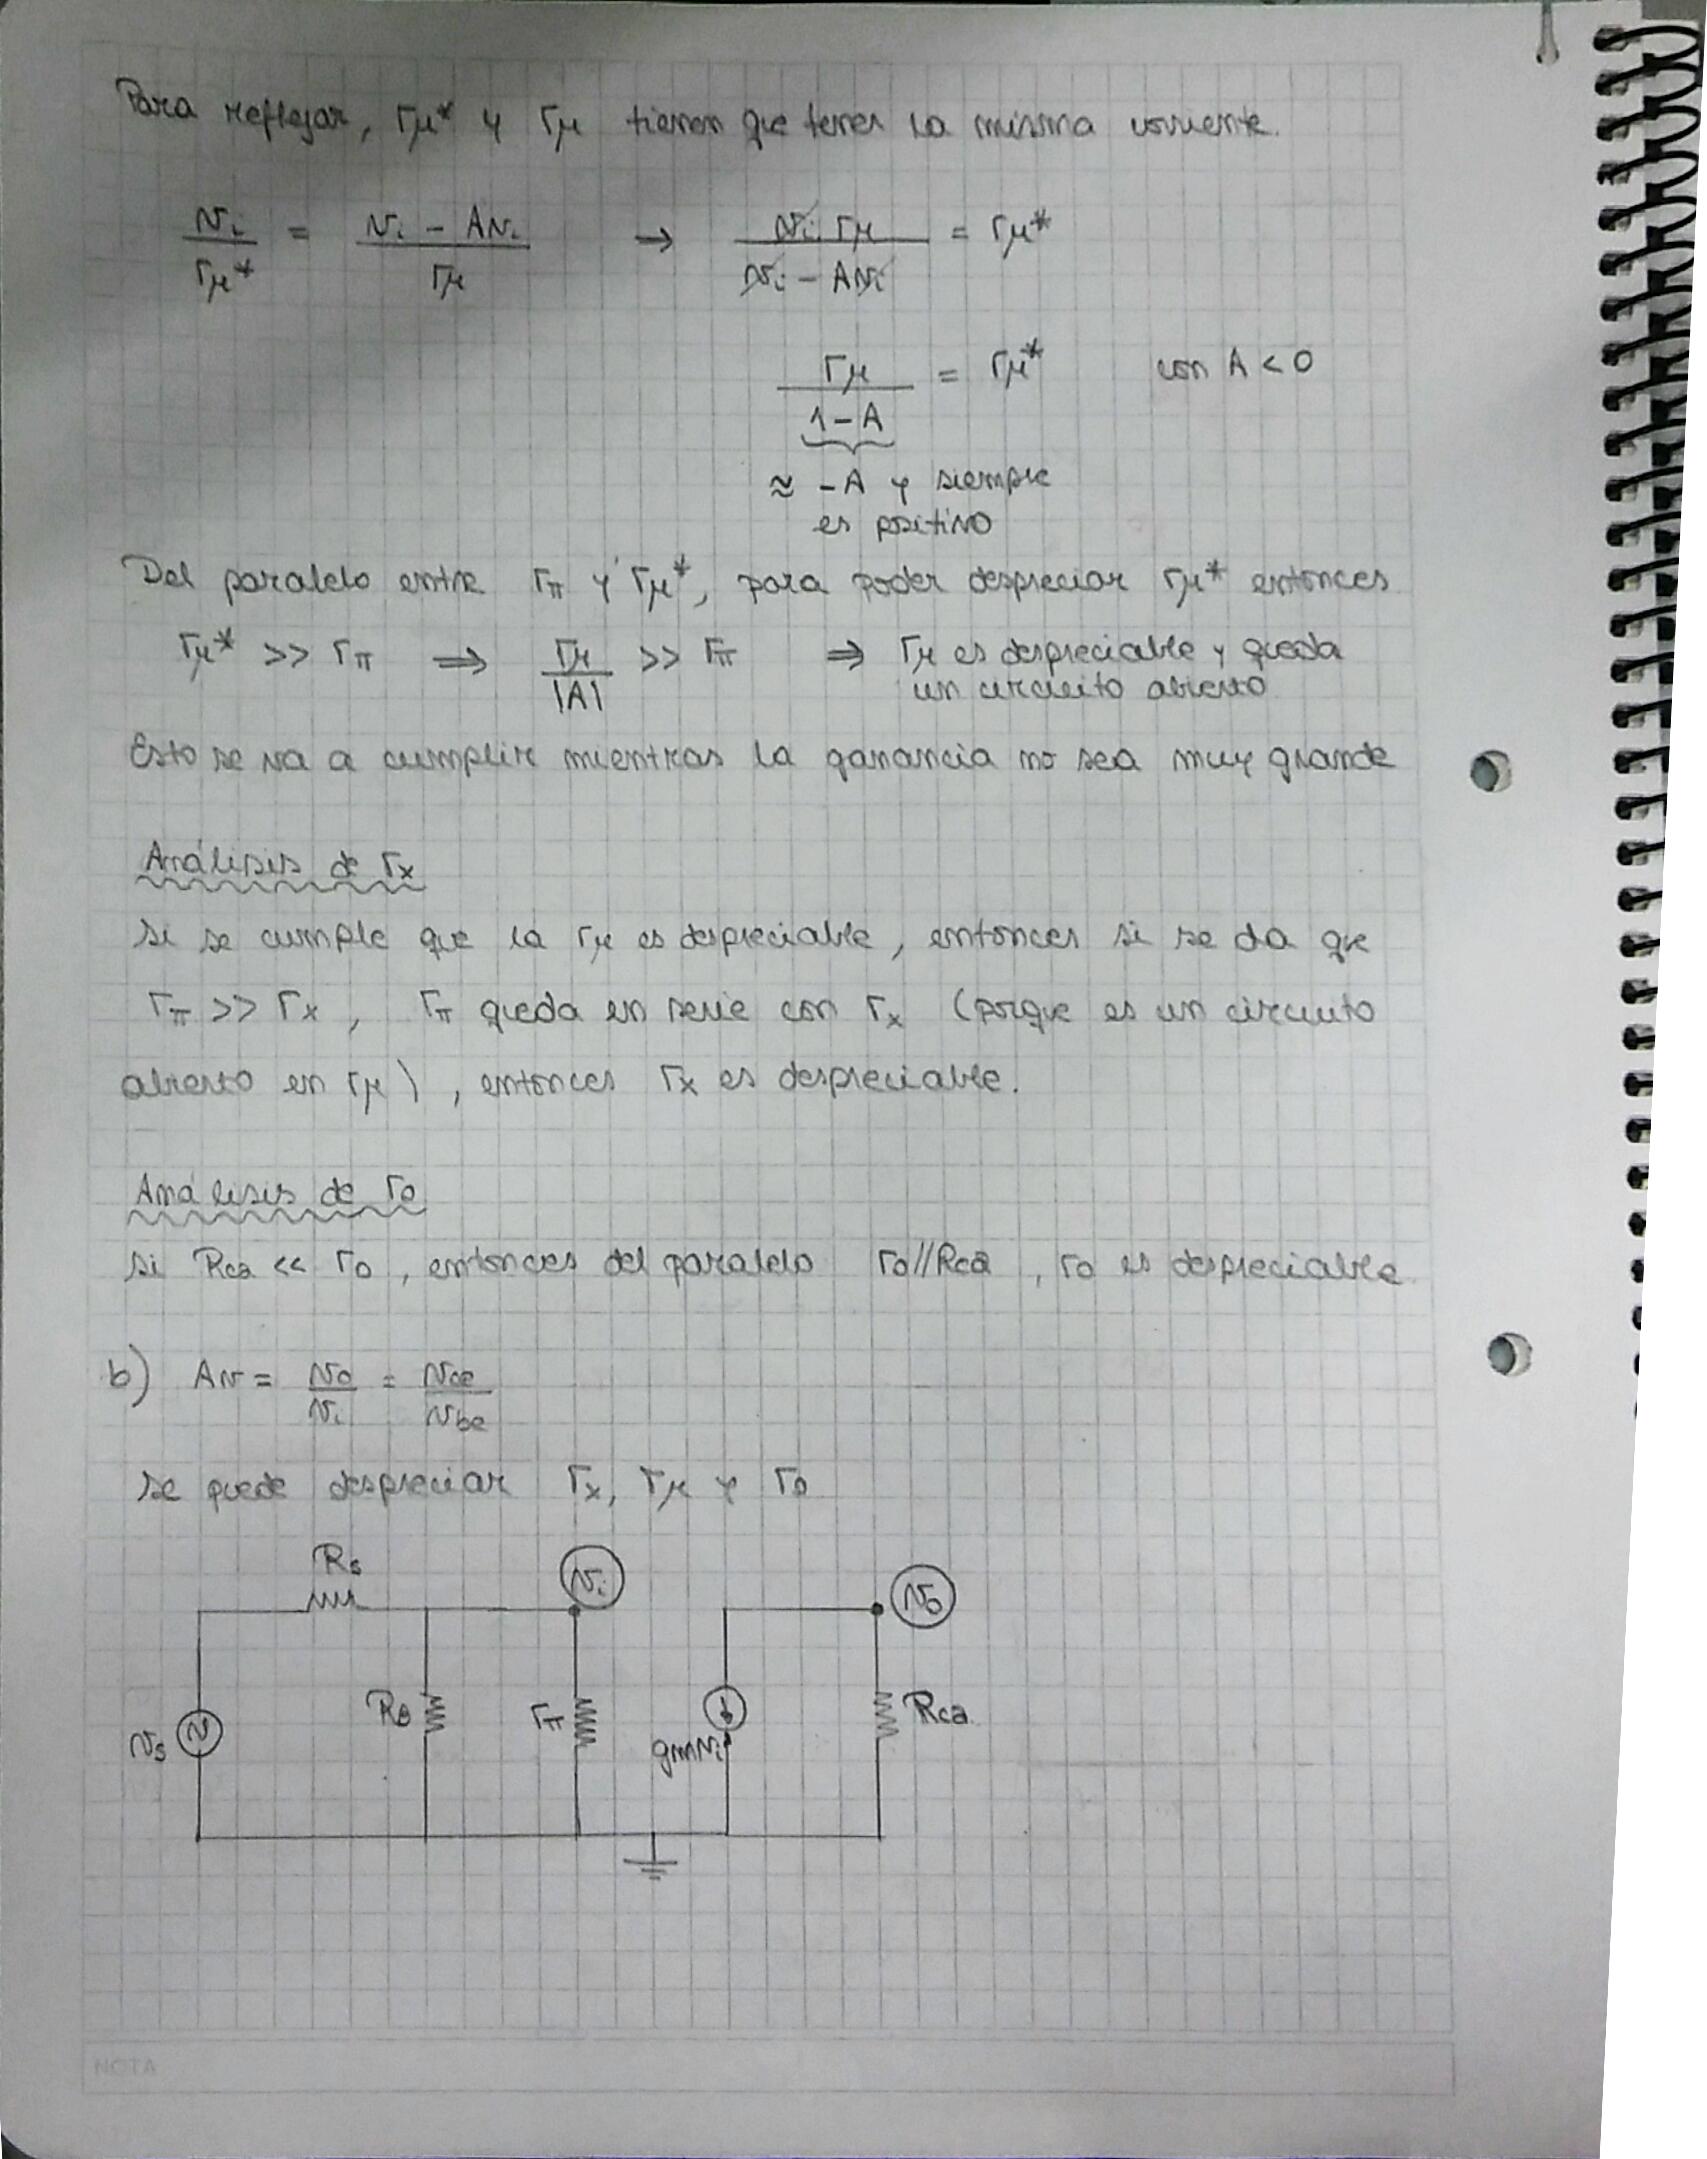 Para reflejar, rμ* y rμ tienen que tener la misma corriente.
vi / rμ* = (vi - Avi) / rμ → vi rμ / (vi - Avi) = rμ*
rμ / (1 - A) = rμ* con A < 0
≈ -A y siempre
es positivo
Del paralelo entre rπ y rμ*, para poder despreciar rμ* entonces
rμ* >> rπ ⇒ rμ / |A| >> rπ ⇒ rμ es despreciable y queda
un circuito abierto
Esto se va a cumplir mientras la ganancia no sea muy grande
Análisis de rx
si se cumple que la rμ es despreciable, entonces si se da que
rπ >> rx, rπ queda en serie con rx (porque es un circuito
abierto en rμ), entonces rx es despreciable.
Análisis de ro
si Rca << ro, entonces del paralelo ro//Rca, ro es despreciable
b) Av = vo / vi = vce / vbe
se puede despreciar rx, rμ y ro
Rs
vi
vo
vs
RB
rπ
gmvi
Rca
NOTA